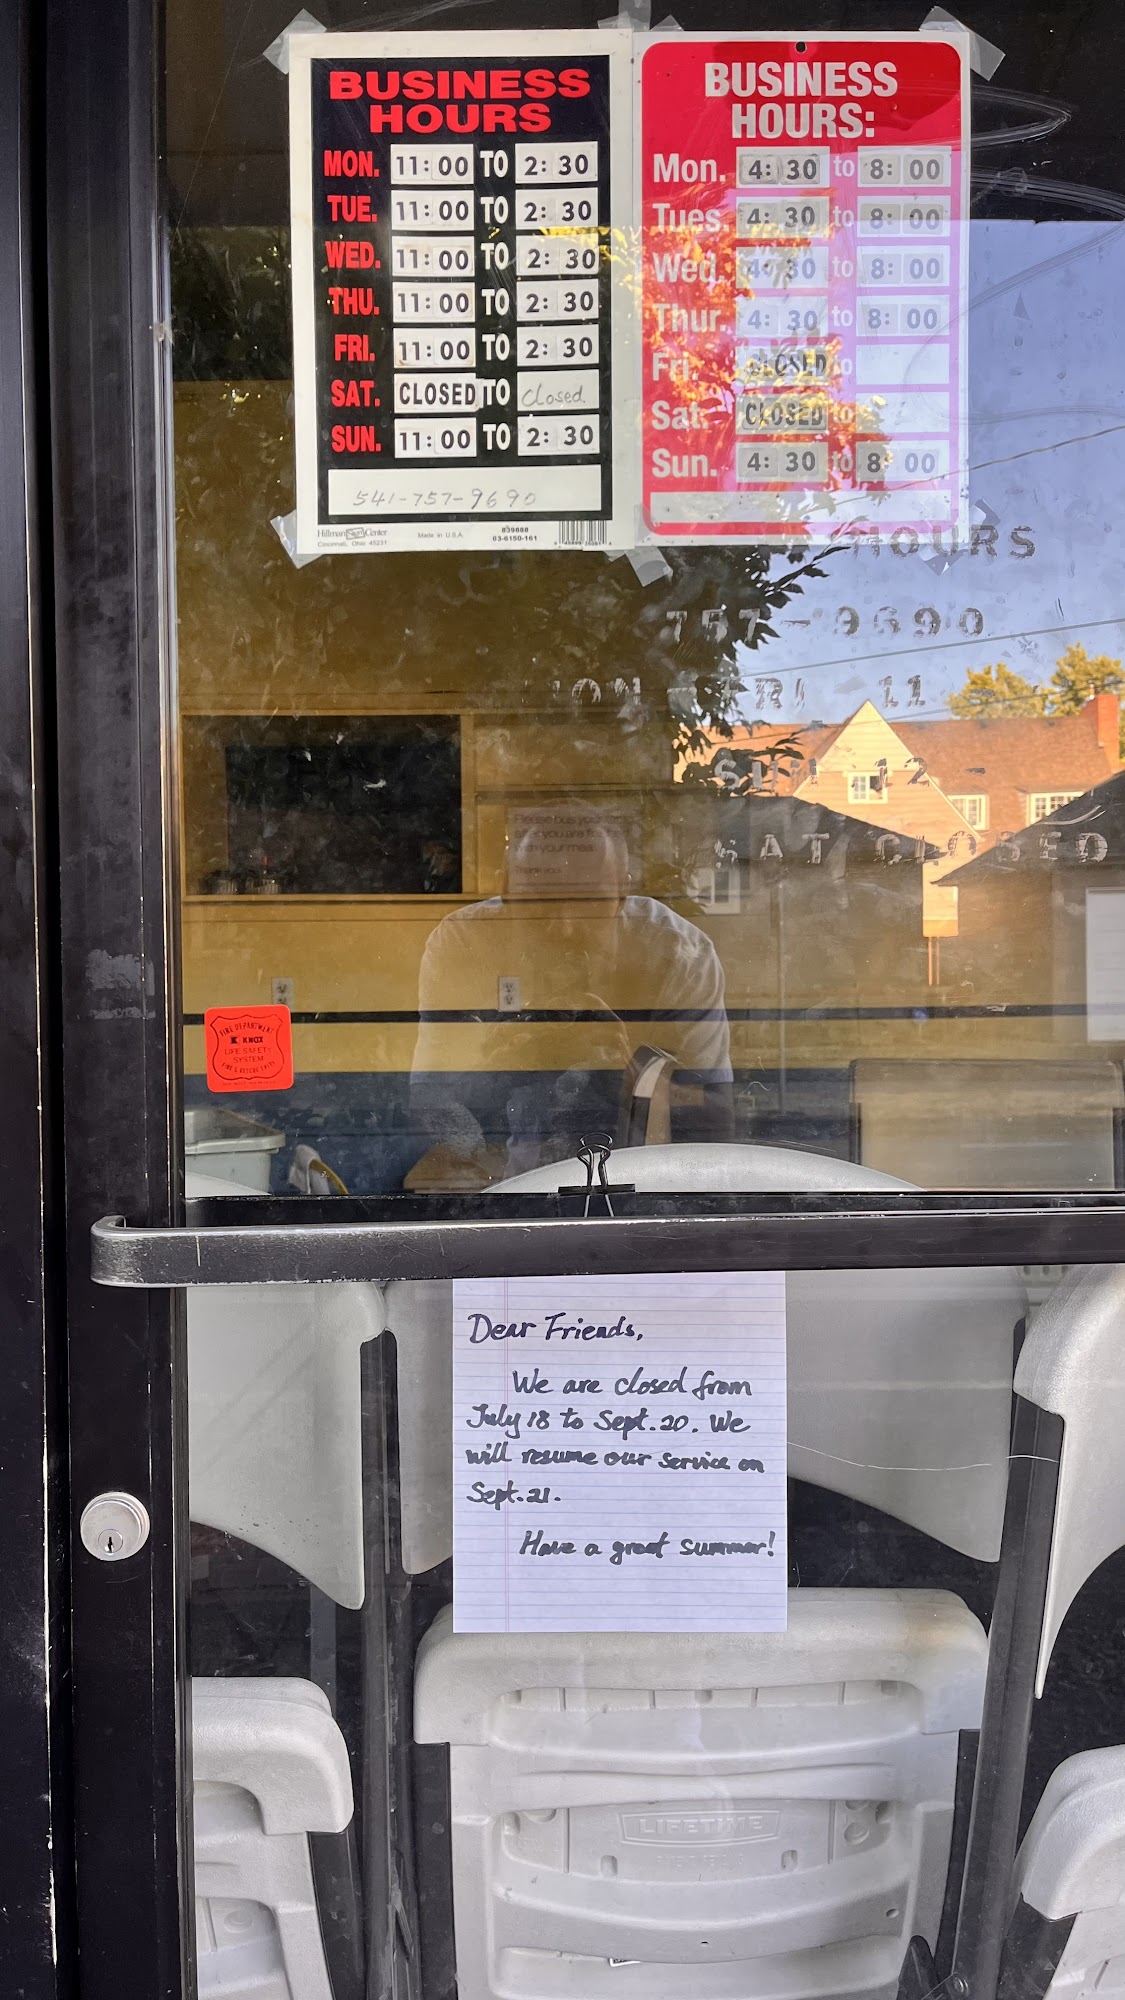 BUSINESS
HOURS
MON. 11:00 TO 2:30
TUE. 11:00 TO 2:30
WED. 11:00 TO 2:30
THU. 11:00 TO 2:30
FRI. 11:00 TO 2:30
SAT. CLOSED TO Closed
SUN. 11:00 TO 2:30
541-757-9690
Hillman Sign Center
Cincinnati, Ohio 45231
Made in U.S.A.
839688
03-6150-161
BUSINESS
HOURS:
Mon. 4:30 to 8:00
Tues. 4:30 to 8:00
Wed. 4:30 to 8:00
Thur. 4:30 to 8:00
Fri. CLOSED to
Sat. CLOSED to
Sun. 4:30 to 8:00
HOURS
757-9690
FRI 11
SUN 12-
SAT CLOSED
Please bus your
after you are
with your meal
Thank you
FIRE DEPARTMENT
KNOX
LIFE SAFETY
SYSTEM
Dear Friends,
We are closed from
July 18 to Sept. 20. We
will resume our service on
Sept. 21.
Have a great summer!
LIFETIME